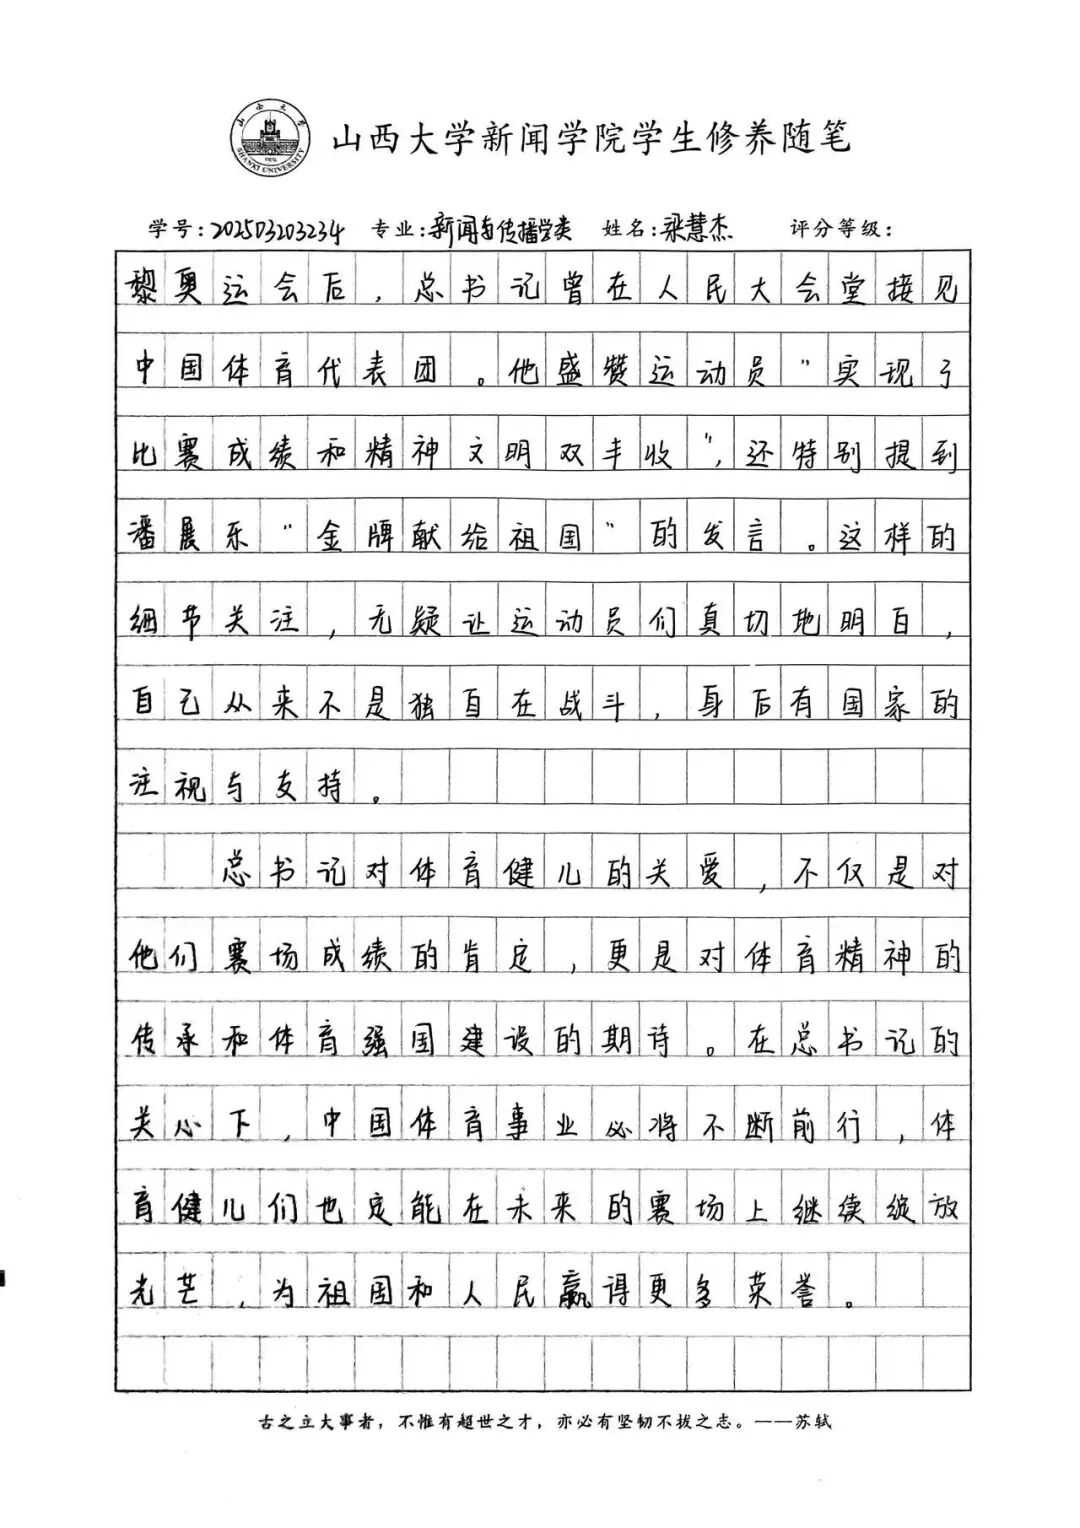 山西大学
SHANXI UNIVERSITY
1902
山西大学新闻学院学生修养随笔
学号:202503203234 专业:新闻与传播学类 姓名:梁慧杰 评分等级:
黎奥运会后,总书记曾在人民大会堂接见
中国体育代表团。他盛赞运动员“实现了
比赛成绩和精神文明双丰收”,还特别提到
潘展乐“金牌献给祖国”的发言。这样的
细节关注,无疑让运动员们真切地明白,
自己从来不是独自在战斗,身后有国家的
注视与支持。
总书记对体育健儿的关爱,不仅是对
他们赛场成绩的肯定,更是对体育精神的
传承和体育强国建设的期诗。在总书记的
关心下,中国体育事业必将不断前行,体
育健儿们也定能在未来的赛场上继续绽放
光芒,为祖国和人民赢得更多荣誉。
古之立大事者,不惟有超世之才,亦必有坚韧不拔之志。——苏轼